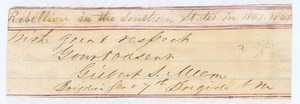 Rebellion in the Southern States in 1861-186
With great respect
Your obdt servt
Gilbert S. Meem
Brigdier Genl 7th Brigade V M